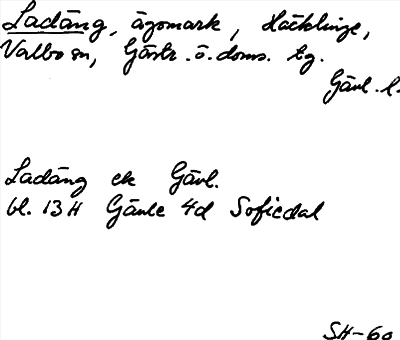 Ladäng, ägomark, Häcklinge,
Valbo sn, Gästr. ö. doms. tg.
Gävl. l.
Ladäng ek Gävl.
bl. 13 H Gävle 4d Sofiedal
SH-60